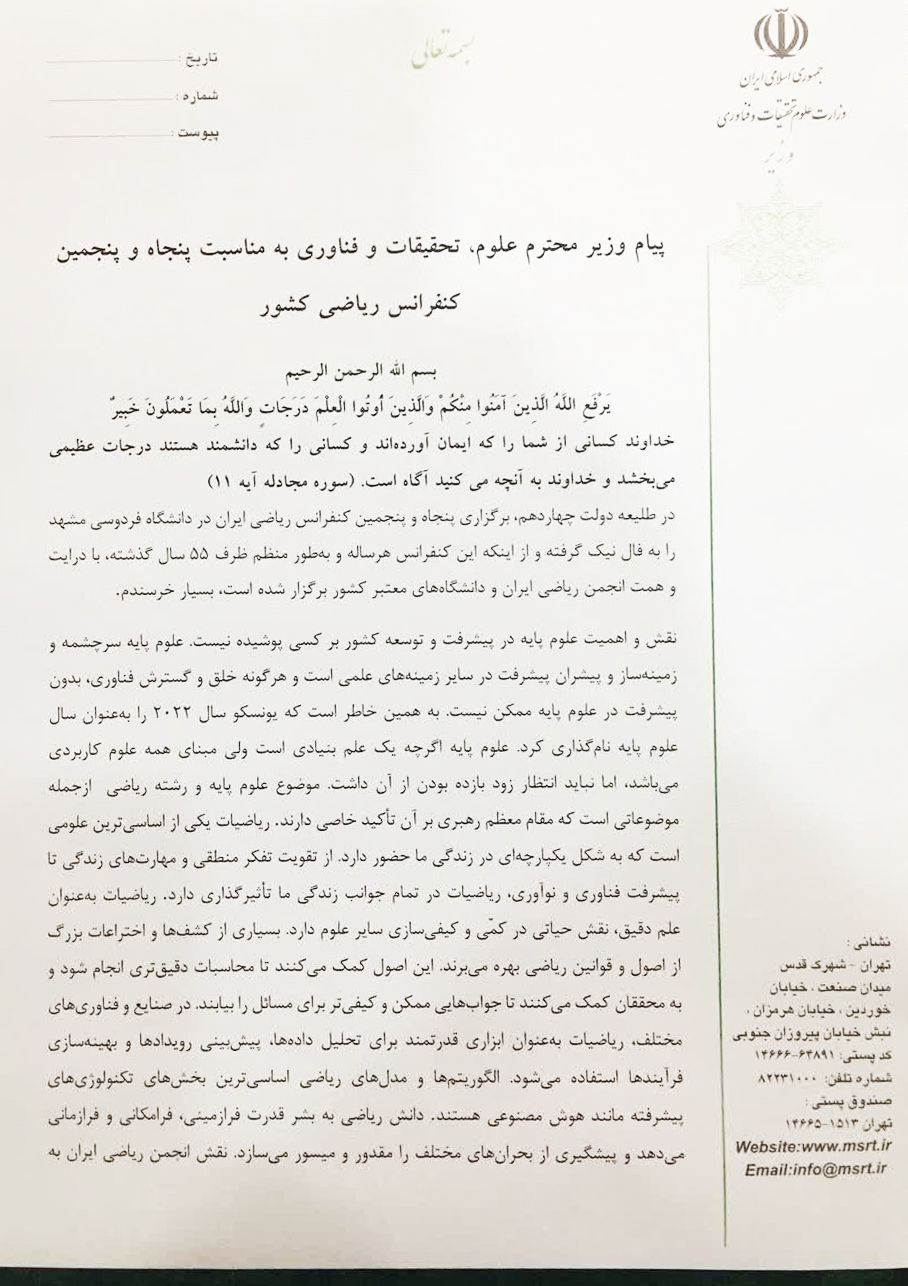 بسمه تعالی
جمهوری اسلامی ایران
وزارت علوم تحقیقات و فناوری
وزیر
تاریخ :
شماره :
پیوست :
پیام وزیر محترم علوم، تحقیقات و فناوری به مناسبت پنجاه و پنجمین
کنفرانس ریاضی کشور
بسم الله الرحمن الرحیم
يَرْفَعِ اللَّهُ الَّذِينَ آمَنُوا مِنْكُمْ وَالَّذِينَ أُوتُوا الْعِلْمَ دَرَجَاتٍ وَاللَّهُ بِمَا تَعْمَلُونَ خَبِيرٌ
خداوند کسانی از شما را که ایمان آورده‌اند و کسانی را که دانشمند هستند درجات عظیمی
می‌بخشد و خداوند به آنچه می کنید آگاه است. (سوره مجادله آیه ۱۱)
در طلیعه دولت چهاردهم، برگزاری پنجاه و پنجمین کنفرانس ریاضی ایران در دانشگاه فردوسی مشهد
را به فال نیک گرفته و از اینکه این کنفرانس هرساله و به‌طور منظم ظرف ۵۵ سال گذشته، با درایت
و همت انجمن ریاضی ایران و دانشگاه‌های معتبر کشور برگزار شده است، بسیار خرسندم.
نقش و اهمیت علوم پایه در پیشرفت و توسعه کشور بر کسی پوشیده نیست. علوم پایه سرچشمه و
زمینه‌ساز و پیشران پیشرفت در سایر زمینه‌های علمی است و هرگونه خلق و گسترش فناوری، بدون
پیشرفت در علوم پایه ممکن نیست. به همین خاطر است که یونسکو سال ۲۰۲۲ را به‌عنوان سال
علوم پایه نام‌گذاری کرد. علوم پایه اگرچه یک علم بنیادی است ولی مبنای همه علوم کاربردی
می‌باشد، اما نباید انتظار زود بازده بودن از آن داشت. موضوع علوم پایه و رشته ریاضی ازجمله
موضوعاتی است که مقام معظم رهبری بر آن تأکید خاصی دارند. ریاضیات یکی از اساسی‌ترین علومی
است که به شکل یکپارچه‌ای در زندگی ما حضور دارد. از تقویت تفکر منطقی و مهارت‌های زندگی تا
پیشرفت فناوری و نوآوری، ریاضیات در تمام جوانب زندگی ما تأثیرگذاری دارد. ریاضیات به‌عنوان
علم دقیق، نقش حیاتی در کمّی و کیفی‌سازی سایر علوم دارد. بسیاری از کشف‌ها و اختراعات بزرگ
از اصول و قوانین ریاضی بهره می‌برند. این اصول کمک می‌کنند تا محاسبات دقیق‌تری انجام شود و
به محققان کمک می‌کنند تا جواب‌هایی ممکن و کیفی‌تر برای مسائل را بیابند. در صنایع و فناوری‌های
مختلف، ریاضیات به‌عنوان ابزاری قدرتمند برای تحلیل داده‌ها، پیش‌بینی رویدادها و بهینه‌سازی
فرآیندها استفاده می‌شود. الگوریتم‌ها و مدل‌های ریاضی اساسی‌ترین بخش‌های تکنولوژی‌های
پیشرفته مانند هوش مصنوعی هستند. دانش ریاضی به بشر قدرت فرازمینی، فرامکانی و فرازمانی
می‌دهد و پیشگیری از بحران‌های مختلف را مقدور و میسور می‌سازد. نقش انجمن ریاضی ایران به
نشانی :
تهران - شهرک قدس
میدان صنعت ، خیابان
خوردین ، خیابان هرمزان ،
نبش خیابان پیروزان جنوبی
کد پستی: ۶۳۸۹۱-۱۴۶۶۶
شماره تلفن: ۸۲۲۳۱۰۰۰
صندوق پستی :
تهران ۱۵۱۳-۱۴۶۶۵
Website:www.msrt.ir
Email:info@msrt.ir